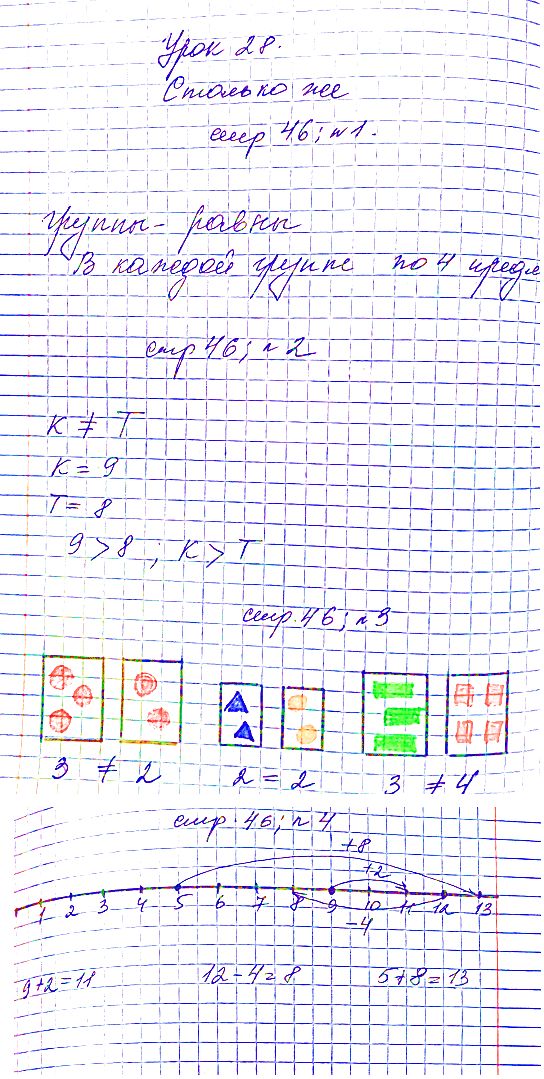 Урок 28.
Столько же
стр 46; №1.
Группы - равны
В каждой группе по 4 предм
стр 46; №2
К ≠ Т
К = 9
Т = 8
9 > 8 ; К > Т
стр. 46; №3
3 ≠ 2 2 = 2 3 ≠ 4
стр. 46; №4
+8
+2
1 2 3 4 5 6 7 8 9 10 11 12 13
-4
9+2=11 12-4=8 5+8=13